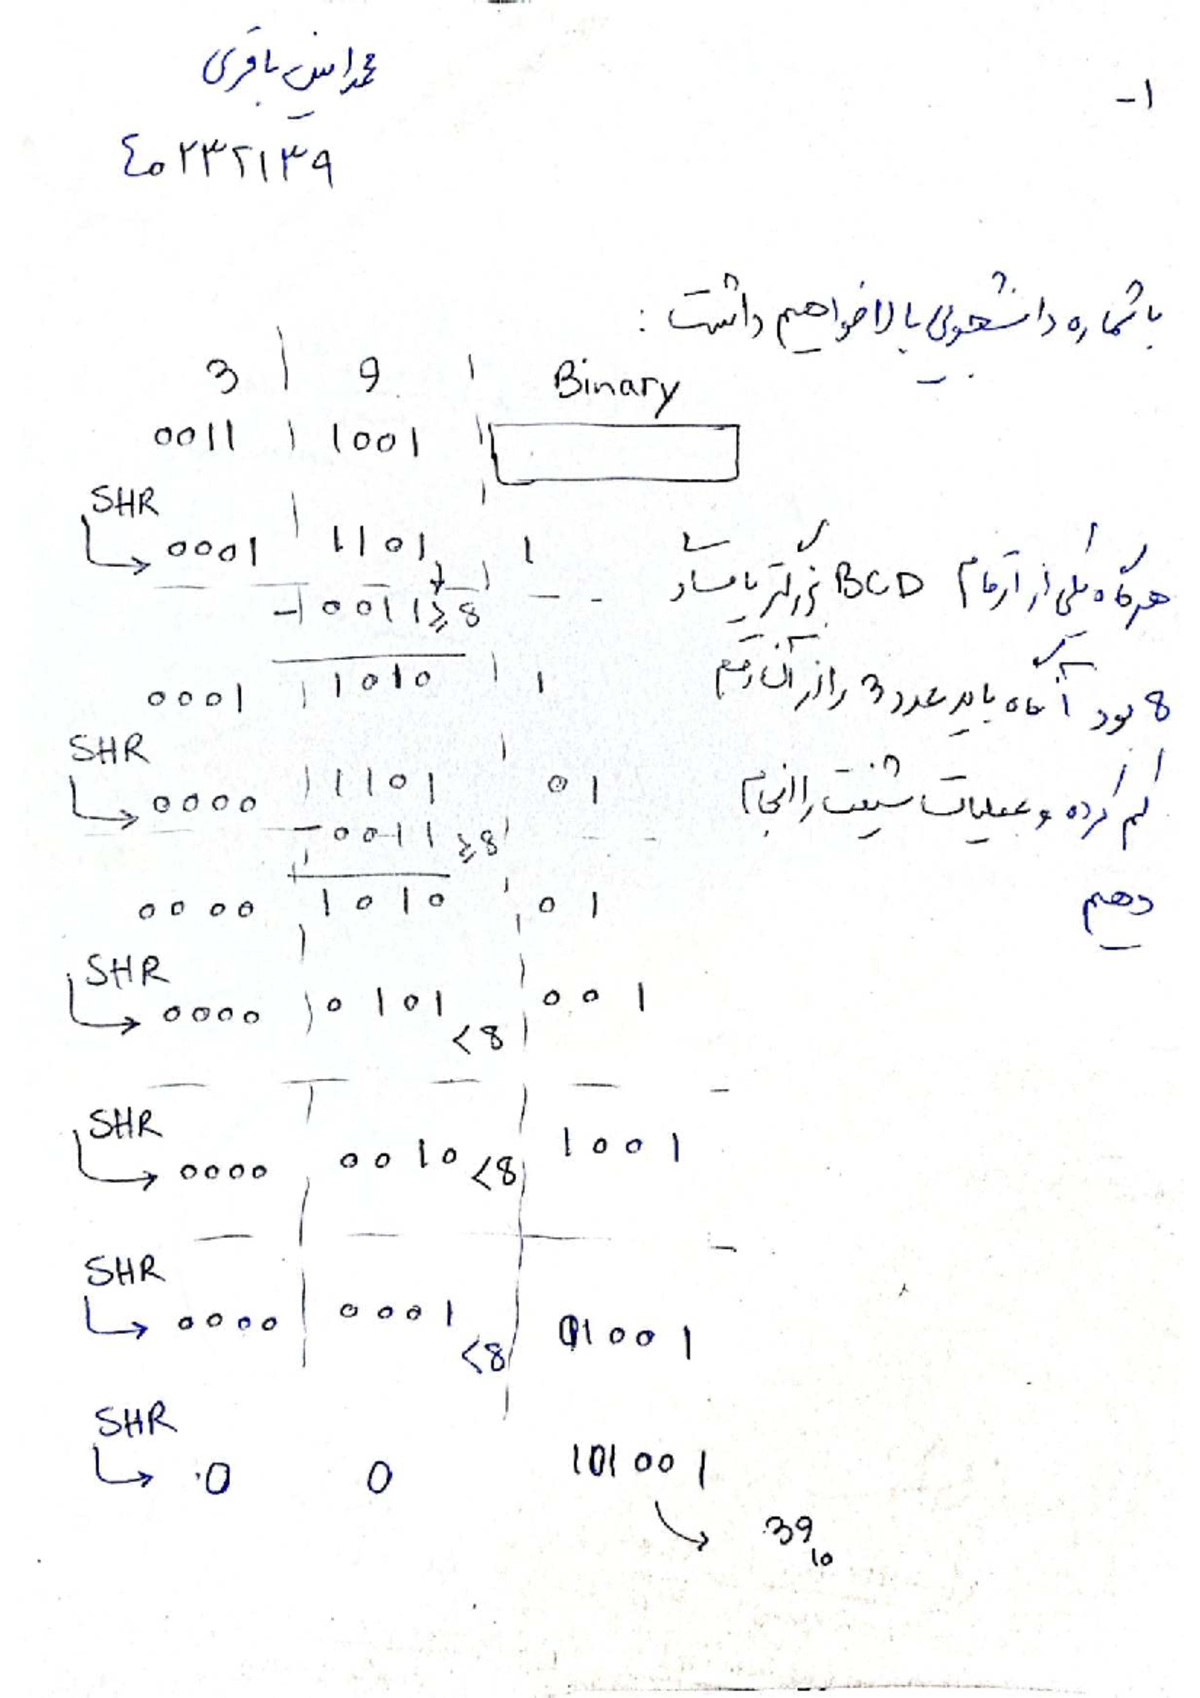 محمد امین باقری
۱-
۴۰۲۳۲۱۳۹
با شماره دانشجویی بالا خواهیم داشت :
3 | 9 | Binary
0011 | 1001 |
SHR
0001 | 1101 | 1
- 0011 ≥8
0001 | 1010 | 1
SHR
0000 | 1101 | 01
- 0011 ≥8
0000 | 1010 | 01
SHR
0000 | 0101 <8 | 001
SHR
0000 | 0010 <8 | 1001
SHR
0000 | 0001 <8 | 01001
SHR
0 0 101001
39₁₀
هرگاه یکی از ارقام BCD بزرگتر یا مساوی
8 بود آنگاه باید عدد 3 را از آن رقم
کم کرده و عملیات شیفت را انجام
دهیم